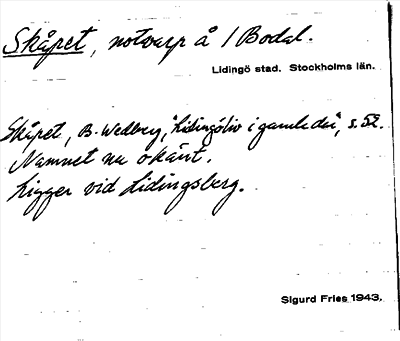 Skåpet, notvarp å 1 Bodal.
Lidingö stad. Stockholms län.
Skåpet, B. Wedberg, "Lidingöliv i gamla da'r", s. 52.
Namnet nu okänt.
Ligger vid Lidingsberg.
Sigurd Fries 1943.